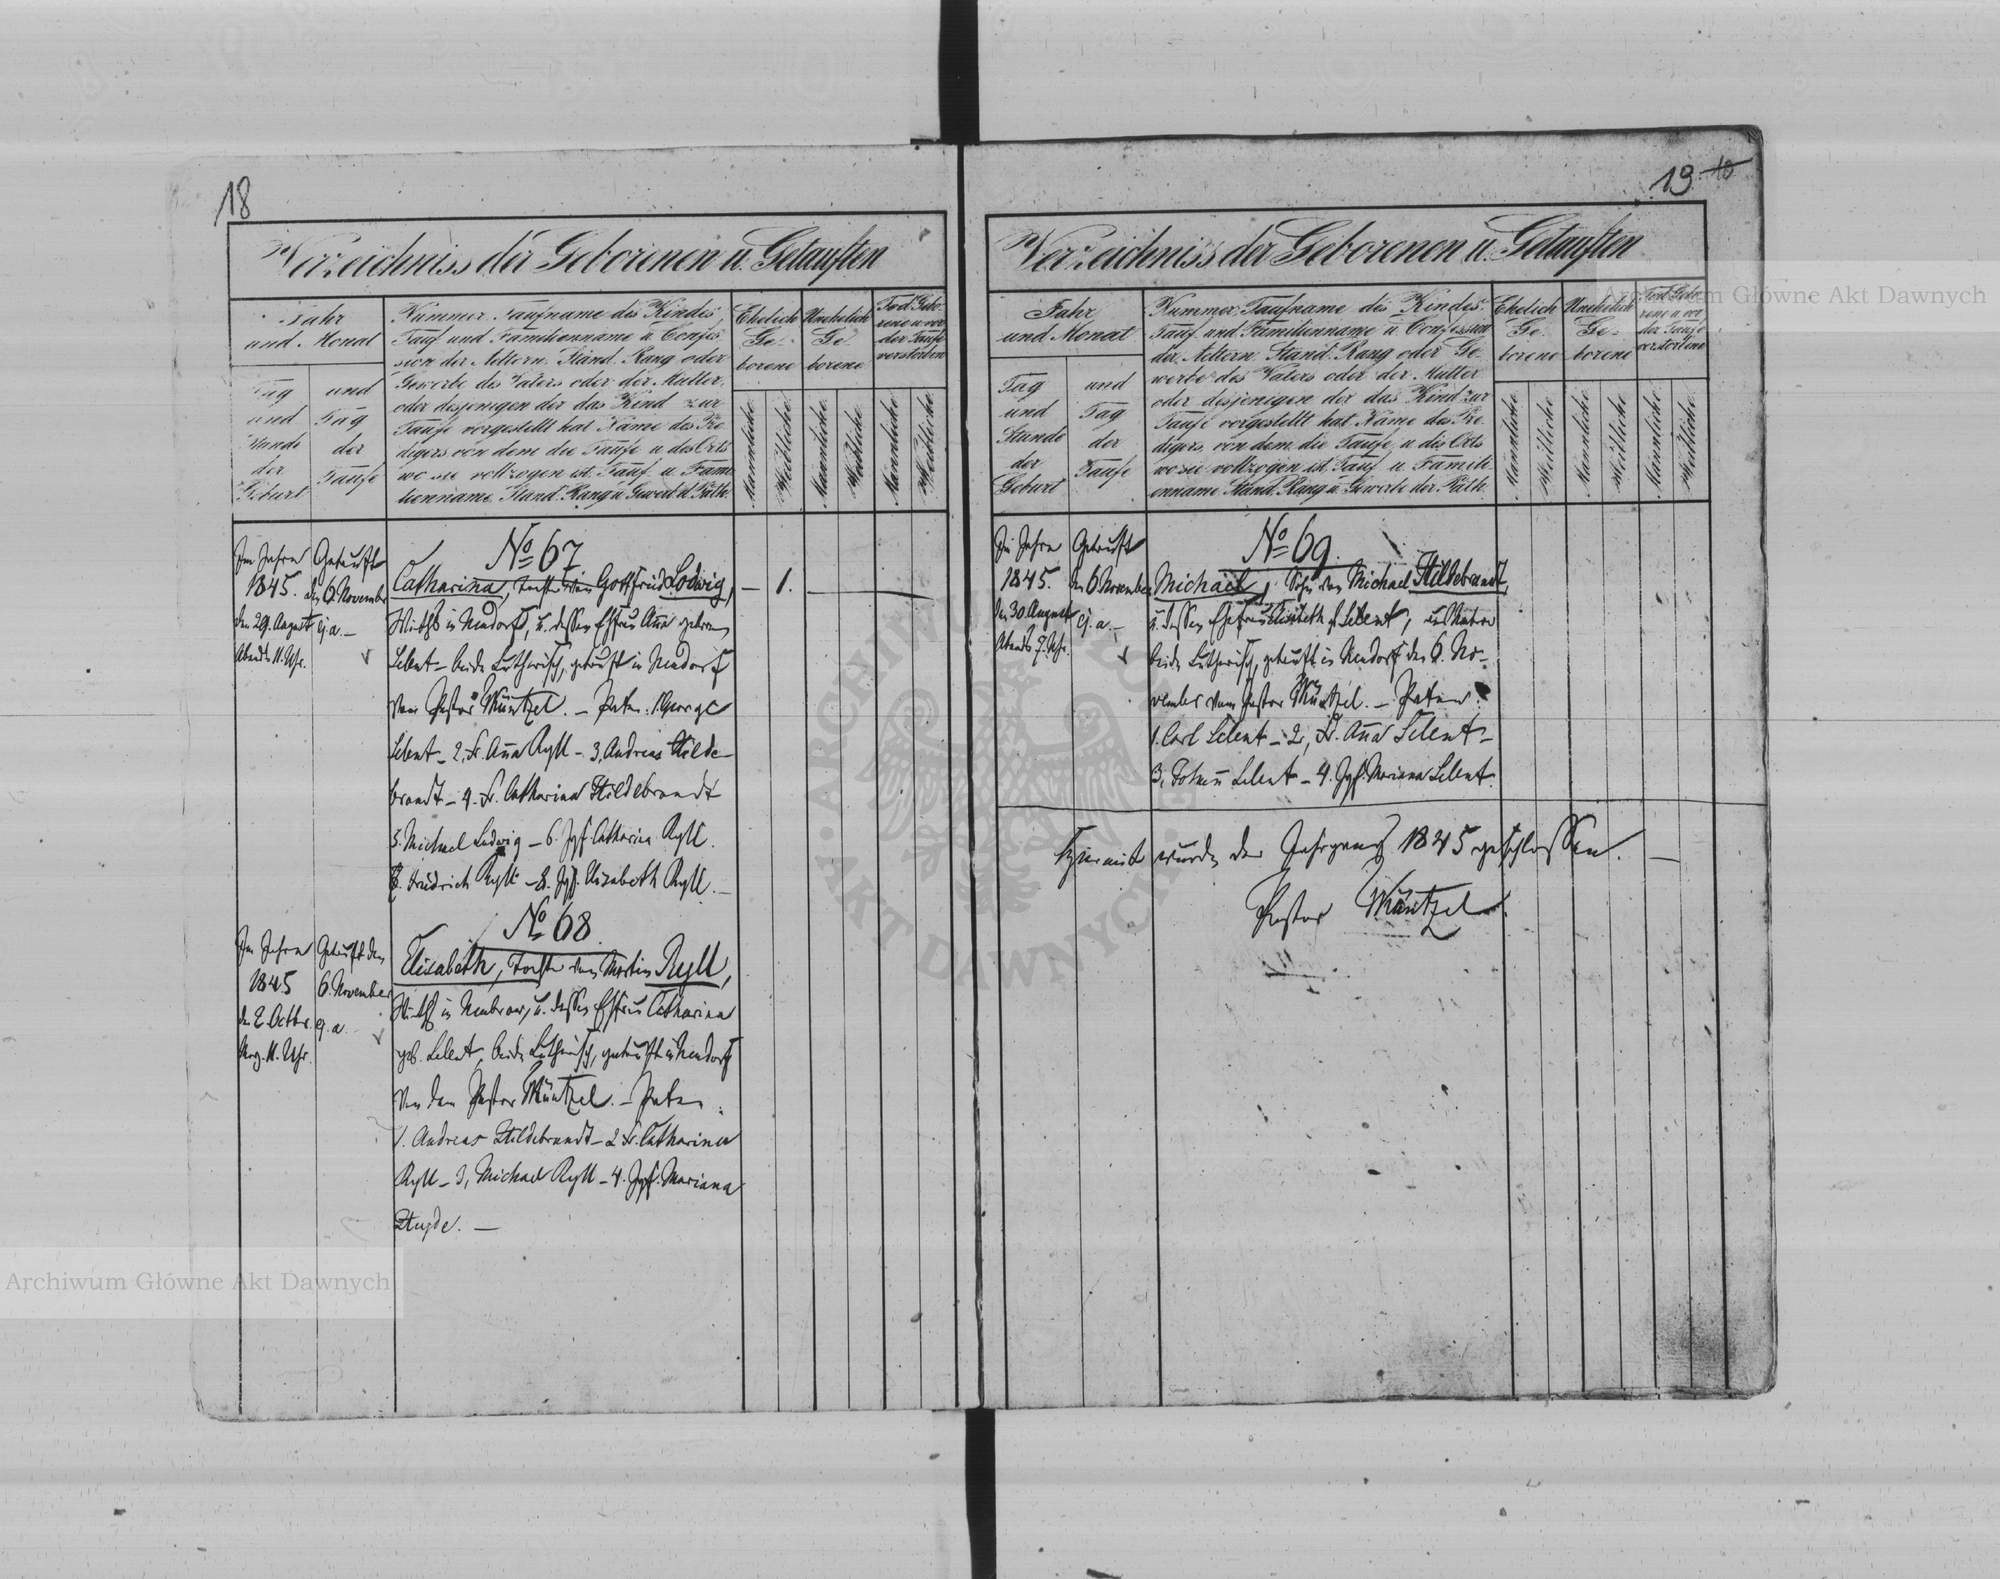 18
Verzeichniss der Geborenen u. Getauften
Jahr
und Monat
Tag
und
Stunde
der
Geburt
und
Tag
der
Taufe
Nummer. Taufname des Kindes.
Tauf und Familienname u. Confes-
sion der Aeltern. Stand. Rang oder
Gewerbe des Vaters oder der Mutter,
oder desjenigen der das Kind zur
Taufe vorgestellt hat. Name des Pre-
digers von dem die Taufe u. des Orts
wo sie vollzogen ist. Tauf u. Fami-
lienname. Stand. Rang u. Gewerb. d. Path.
Ehelich
Ge-
borene
Unehelich
Ge-
borene
Tod Gebo-
rene u. vor
der Taufe
verstorben
Männliche
Weibliche
Männliche
Weibliche
Männliche
Weibliche
Im Jahre
1845.
den 29. August
Abends 11. Uhr.
Getauft
den 6. November
ej. a. –
№ 67.
Catharina, Tochter von Gottfried Lodwig,
Wirths in Neudorf, u. dessen Ehefrau Anna geborene
Lelent – beide Lutherisch, getauft in Neudorf
vom Pastor Müntzel. – Paten: 1. George
Lelent – 2, Fr. Anna Ryll – 3, Andreas Hilde-
brandt – 4. Fr. Catharina Hildebrandt
5. Michael Ludwig – 6. Jgf. Catharina Ryll.
7. Friedrich Ryll – 8. Jgf. Elizabeth Ryll. –
– 1. –
Im Jahre
1845
den 2. Octbr.
Morg. 11. Uhr.
Getauft den
6. November
ej. a.
№ 68
Elisabeth, Tochter von Martin Ryll,
Wirths in Neubrow, u. dessen Ehefrau Catharina
geb. Lelent, beide Lutherisch, getauft in Neudorf
von dem Pastor Müntzel. – Paten:
1. Andreas Hildebrandt – 2 Fr. Catharina
Ryll – 3, Michael Ryll – 4. Jgf. Mariana
19 10
Verzeichniss der Geborenen u. Getauften
Jahr
und Monat
Tag
und
Stunde
der
Geburt
und
Tag
der
Taufe
Nummer. Taufname des Kindes.
Tauf und Familienname u. Confession
der Aeltern. Stand. Rang oder Ge-
werbe des Vaters oder der Mutter
oder desjenigen der das Kind zur
Taufe vorgestellt hat. Name des Pre-
digers, von dem die Taufe u. des Orts
wo sie vollzogen ist. Tauf u. Famili-
enname. Stand. Rang u. Gewerbe der Path.
Ehelich
Ge-
borene
Unehelich
Ge-
borene
Tod Gebo-
rene u. vor
der Taufe
verstorbene
Männliche
Weibliche
Männliche
Weibliche
Männliche
Weibliche
Im Jahre
1845.
den 30. August
Abends 7. Uhr.
Getauft
den 6 November
ej. a. –
№ 69.
Michael, Sohn von Michael Hildebrandt,
u. dessen Ehefrau Elisabeth g. Lelent,
beide Lutherisch, getauft in Neudorf den 6. No-
vember vom Pastor Müntzel. – Paten:
1. Carl Lelent – 2, Fr. Anna Lelent –
3, Lelent – 4. Jgf. Mariana Lelent.
Hiermit wurde der Jahrgang 1845 geschlossen. –
Pastor Müntzel.
Archiwum Główne Akt Dawnych
Archiwum Główne Akt Dawnych
ARCHIWUM GŁÓWNE AKT DAWNYCH